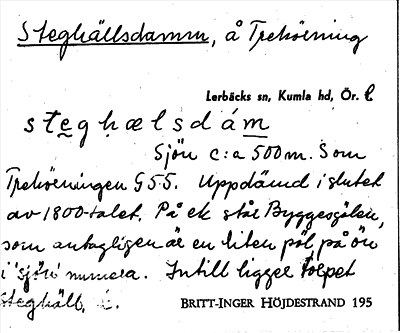 Steghällsdamm, å Trehörning
Lerbäcks sn, Kumla hd, Ör. l
steghælsdám
Sjön c:a 500 m. Som
Trehörningen G 5 5. Uppdämd i slutet
av 1800-talet. På ek står Byggesgölen,
som antagligen är en liten pöl på ön
i "sjön" numera. Intill ligger torpet
Steghäll,
BRITT-INGER HÖJDESTRAND 195